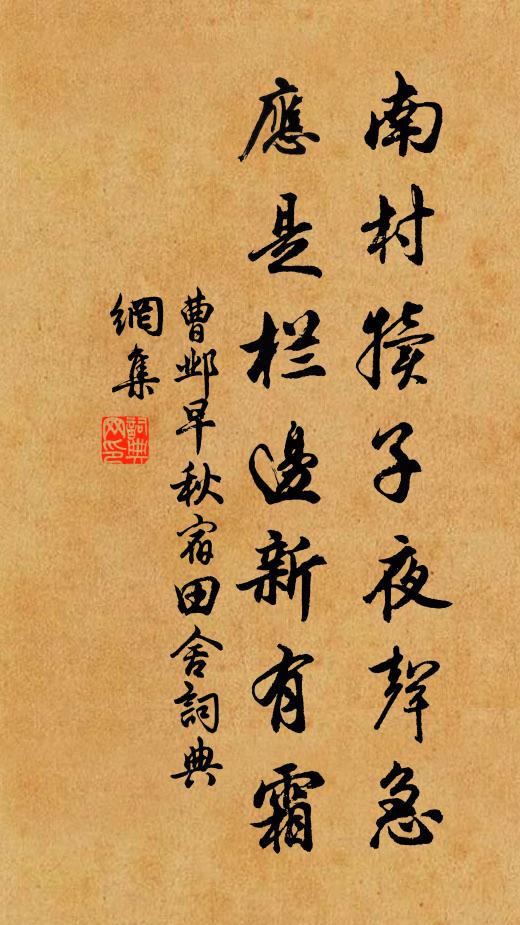 南村犢子夜聲急
應是栏邊新有霜
曹邺早秋宿田舍詞典
網集
詞典网印